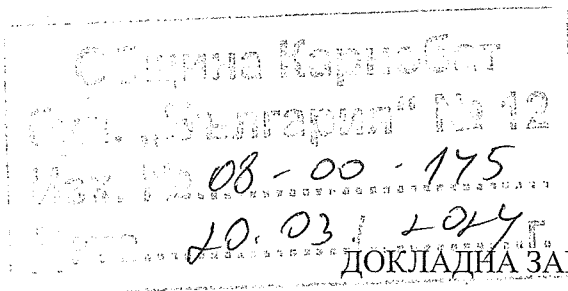 Община Карнобат
бул. „България“ № 12
Изх. № 08-00-175
Дата 20.03. 2024 г.
ДОКЛАДНА ЗА